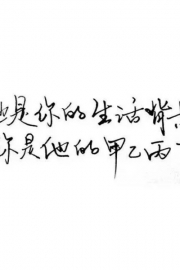 是你的生活背
你是他的甲乙丙